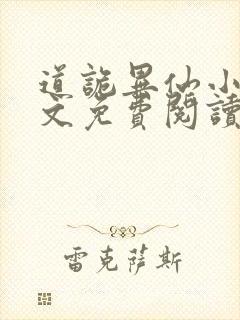 道詭異仙小
文免費閱讀
雷克薩斯